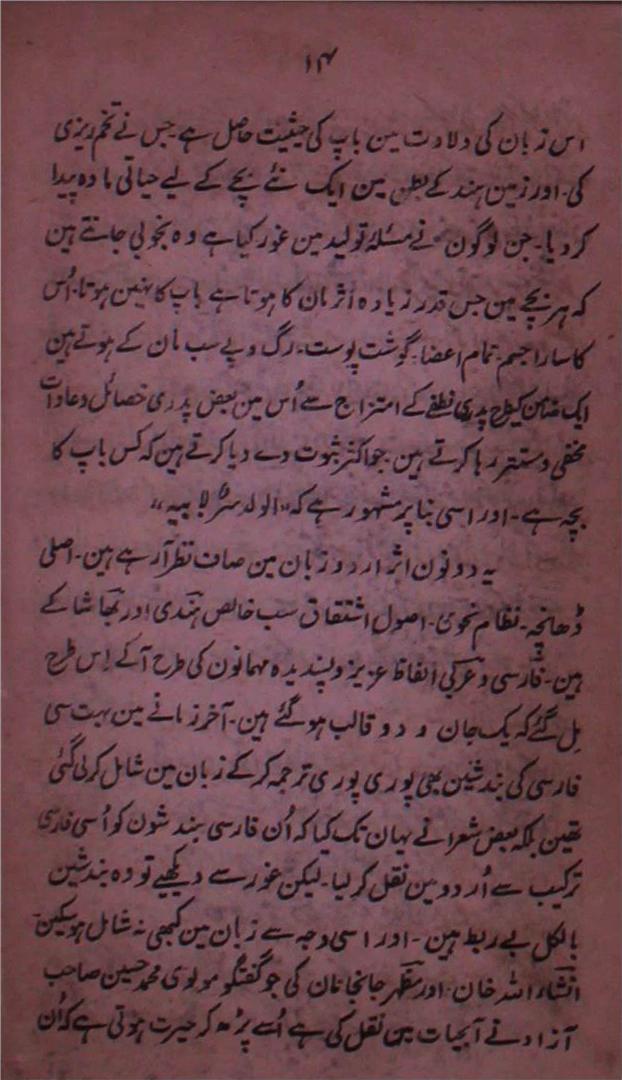 ۱۴
اس زبان کی ولادت مین باپ کی حیثیت حاصل ہے جس نے تخم ریزی
کی۔ اور زمین ہند کے بطن مین ایک نئے بچے کے لیے حیاتی مادہ پیدا
کر دیا۔ جن لوگون نے مسئلۂ تولید مین غور کیا ہے وہ بخوبی جانتے ہین
کہ ہر بچے مین جس قدر زیادہ اثر مان کا ہوتا ہے باپ کا نہین ہوتا۔ اُس
کا سارا جسم۔ تمام اعضا۔ گوشت پوست۔ رگ و پے سب مان کے ہوتے ہین
ایک ضامن کیطرح پدری نطفے کے امتزاج سے اُس مین بعض پدری خصائل و عادات
مخفی و مستتر رہا کرتے ہین۔ جو اکثر ثبوت دے دیا کرتے ہین کہ کس باپ کا
بچہ ہے۔ اور اسی بنا پر مشہور ہے کہ "الولد سرٌ لابیہ"
یہ دونون اثر اردو زبان مین صاف نظر آ رہے ہین۔ اصلی
ڈھانچہ۔ نظام نحوی۔ اصول اشتقاق سب خالص ہندی اور بھاشا کے
ہین۔ فارسی و عربی الفاظ عزیز و پسندیدہ مہمانون کی طرح آ کے اِس طرح
مِل گئے کہ یک جان و دو قالب ہو گئے ہین۔ آخر زمانے مین بہت سی
فارسی کی بندشین بھی پوری پوری ترجمہ کر کے زبان مین شامل کر لی گئی
تھین بلکہ بعض شعرا نے یہان تک کیا کہ اُن فارسی بندشون کو اُسی فارسی
ترکیب سے اُردو مین نقل کر لیا۔ لیکن غور سے دیکھیے تو وہ بندشین
بالکل بے ربط ہین۔ اور اسی وجہ سے زبان مین کبھی نہ شامل ہو سکین۔
انشاء اللہ خان۔ اور مظہر جانجانان کی جو گفتگو مولوی محمد حسین صاحب
آزاد نے آبحیات مین نقل کی ہے اُسے پڑھ کر حیرت ہوتی ہے کہ اُن